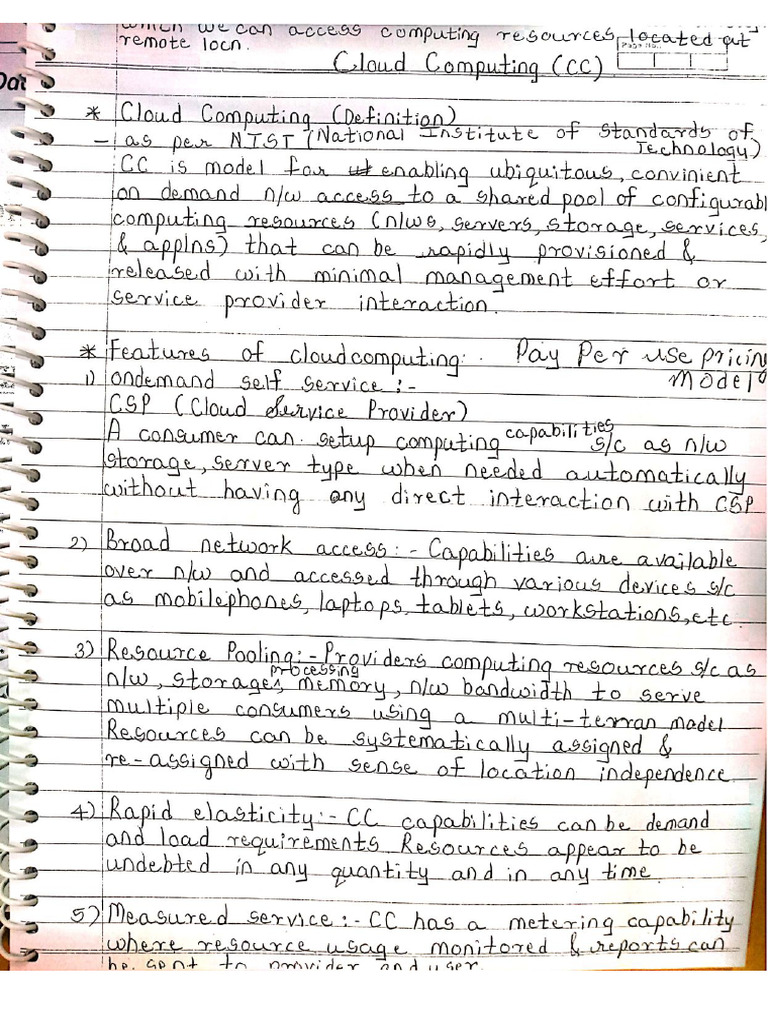 which we can access computing resources located at
remote locn.
Page No.
Cloud Computing (CC)
Dat
* Cloud Computing (Definition)
- as per NIST (National Institute of Standards of
Technology)
CC is model for enabling ubiquitous, convinient
on demand n/w access to a shared pool of configurabl
computing resources (n/ws, servers, storage, services,
& applns) that can be rapidly provisioned &
released with minimal management effort or
service provider interaction.
* Features of cloudcomputing: Pay Per use pricing
Model
1) ondemand self service :-
CSP (Cloud Service Provider)
A consumer can setup computing capabilities s/c as n/w
storage, server type when needed automatically
without having any direct interaction with CSP
2) Broad network access: - Capabilities are available
over n/w and accessed through various devices s/c
as mobilephones, laptops, tablets, workstations, etc.
3) Resource Pooling:- Providers computing resources s/c as
n/w, storages, processing memory, n/w bandwidth to serve
multiple consumers using a multi-terran model
Resources can be systematically assigned &
re-assigned with sense of location independence
4) Rapid elasticity:- CC capabilities can be demand
and load requirements Resources appear to be
undebted in any quantity and in any time.
5) Measured service :- CC has a metering capability
where resource usage monitored & reports can
be sent to provider and user.